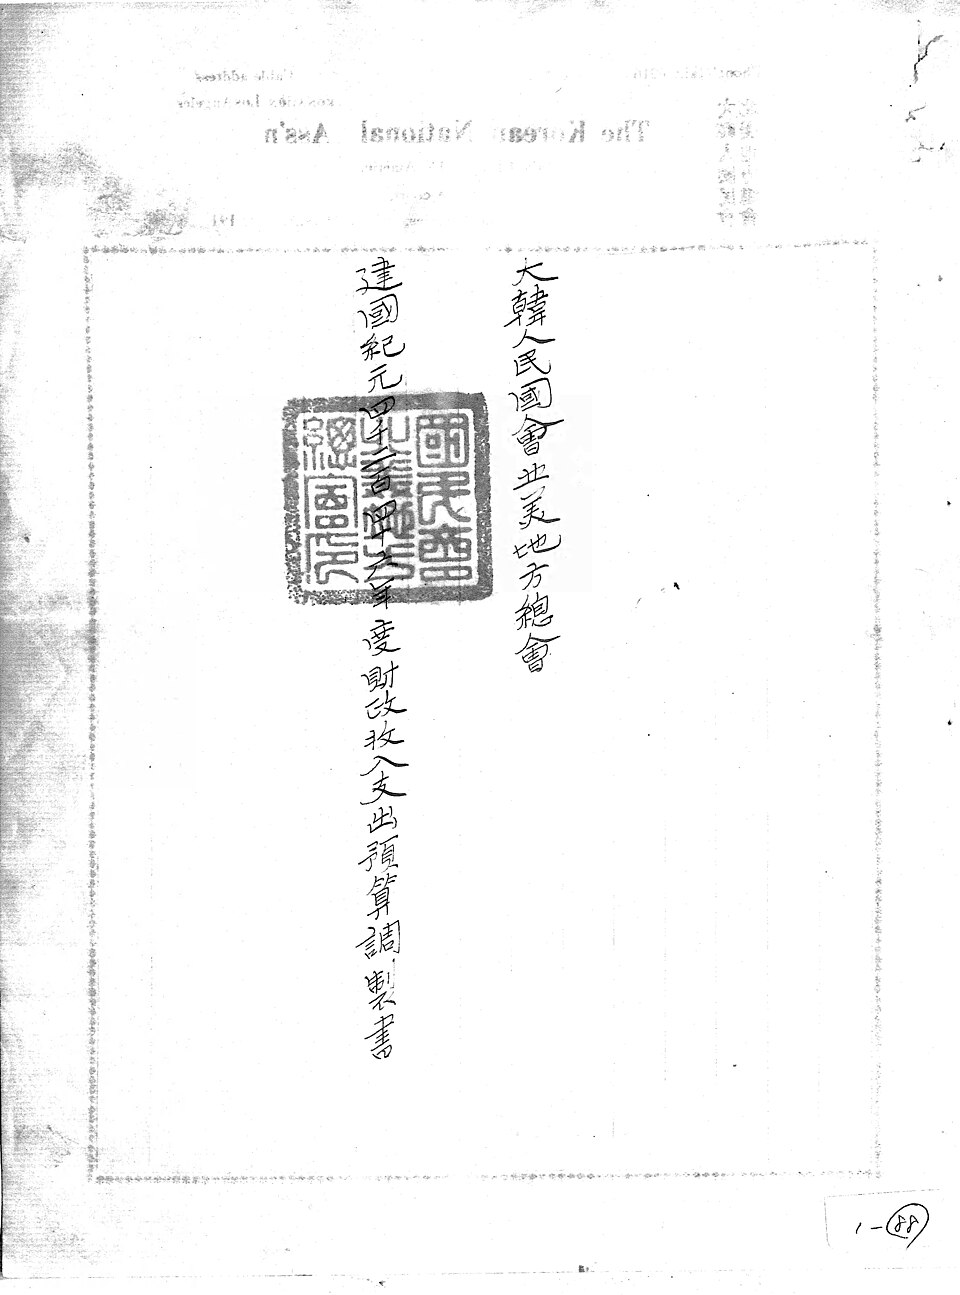 Cable address
Los Angeles
The Korean National Ass'n
191
大韓人民國會北美地方總會
建國紀元四千二百四十六年度財政收入支出預算調製書
國民會
北美地方
總會印
1-88